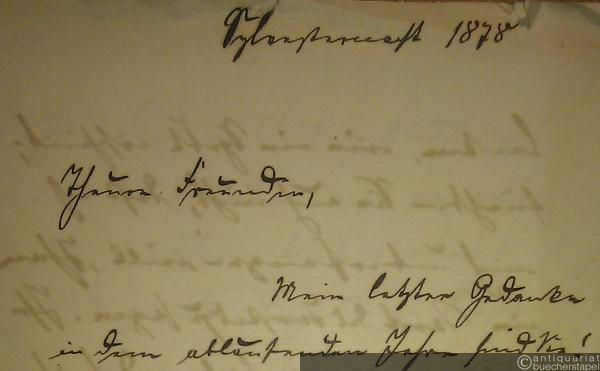 Sylvesternacht 1878
Theure Freundin,
Mein letzter Gedanke
in dem ablaufenden Jahre sind Sie!
antiquariat
buecherstapel